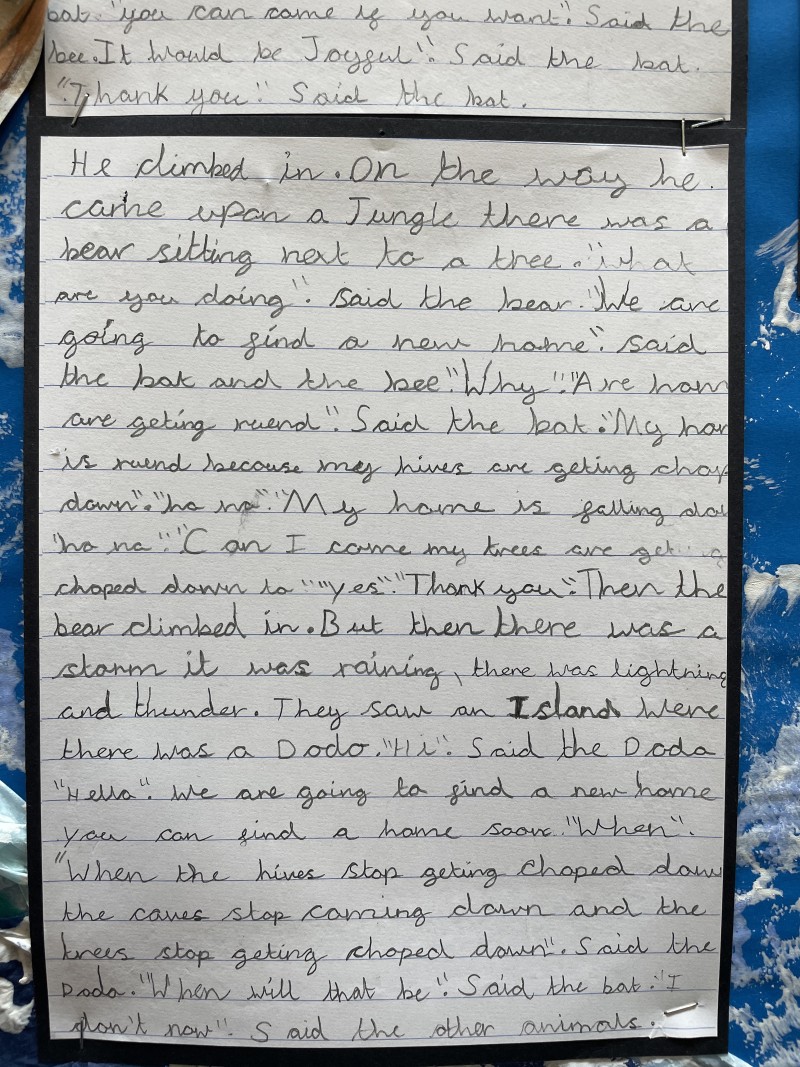 bat. "you can come if you want". Said the
bee. It would be Joyful". Said the bat.
"Thank you". Said the bat.
He climbed in. On the way he
came upon a Jungle there was a
bear sitting next to a tree. "what
are you doing". said the bear. "We are
going to find a new home". said
the bat and the bee "Why". "Are hom
are geting ruend". Said the bat. "My hom
is ruend because my hives are geting chop
down". "ho no". "My home is falling dow
"ho no". "Can I come my trees are geting
choped down to". "yes". "Thank you". Then the
bear climbed in. But then there was a
storm it was raining, there was lightning
and thunder. They saw an Island Were
there was a Dodo. "Hi". Said the Dodo
"Hello". We are going to find a new home
you can find a home soon. "When".
"When the hives stop geting choped down
the caves stop coming down and the
trees stop geting choped down". Said the
Dodo. "When will that be". Said the bat. "I
don't now". Said the other animals.